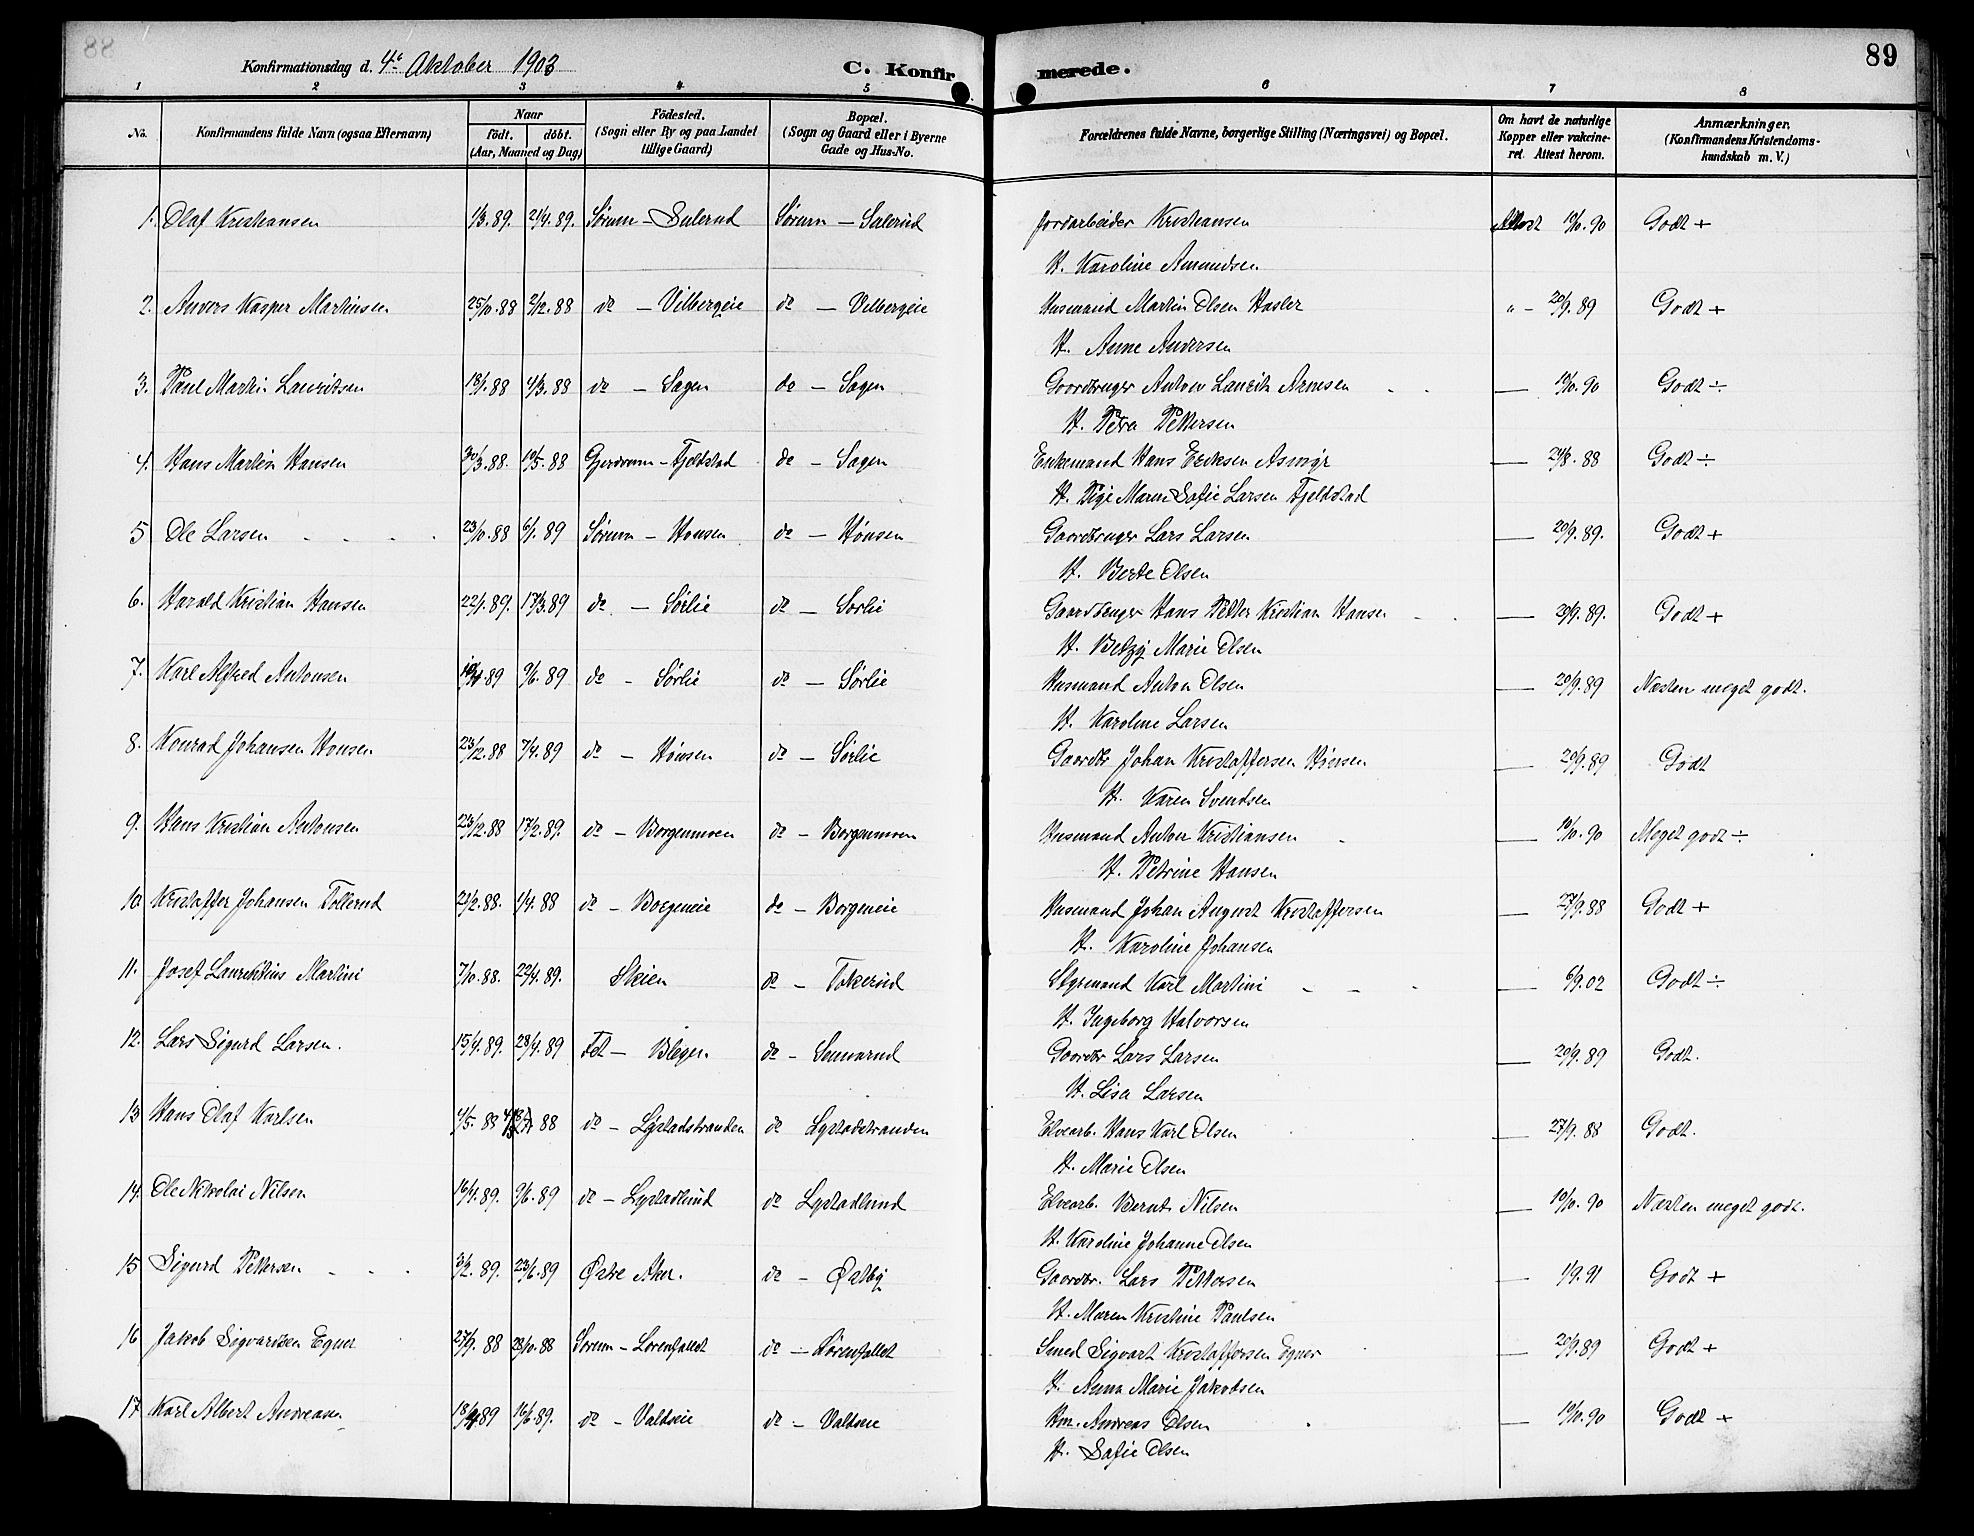 88
Konfirmationsdag d. 4de Oktober 1903
C. Konfirmerede.
89
1 2 3 4 5 6 7 8
No. Konfirmandens fulde Navn (ogsaa Efternavn) Naar født. døbt. (Aar, Maaned og Dag) Fødested. (Sogn eller By og paa Landet tillige Gaard) Bopæl. (Sogn og Gaard eller i Byerne Gade og Hus-No. Forældrenes fulde Navne, borgerlige Stilling (Næringsvei) og Bopæl. Om havt de naturlige Kopper eller vakcineret. Attest herom. Anmærkninger. (Konfirmandens Kristendomskundskab m. V.)
1. Olaf Kristiansen 1/3.89. 21/4.89. Sørum - Salerud Sørum - Salerud Jordarbeider Kristiansen Attest 10/10.90 Godt +
H. Karoline Amundsen
2. Anders Kasper Martinsen 25/10.88 2/12.88 do - Vilbergeie do - Vilbergeie Husmand Martin Olsen Hasler " - 20/9.89 Godt +
H. Anne Andersen
3. Paul Martin Lauritsen 18/1.88 4/3.88 do - Sagen do - Sagen Gaardbruger Anton Lauritz Arnesen - - — 10/10.90 Godt ÷
H. Petra Pettersen
4. Hans Martin Hansen 30/3.88. 10/5.88 Gjerdrum - Fjeldstad do - Sagen Enkemand Hans Eriksen — 24/8.88 Godt ÷
H. Pige Maren Sofie Larsen Fjeldstad
5 Ole Larsen - - - - 23/10.88 6/1.89 Sørum - Hønsen do - Hønsen Gaardbruger Lars Larsen — 20/9.89. Godt +
H. Berte Olsen
6. Harald Kristian Hansen 22/1.89. 17/3.89 do - Sørlie do - Sørlie Gaardbruger Hans Petter Kristian Hansen - - — 20/9.89. Godt +
H. Betzy Marie Olsen
7. Karl Alfred Antonsen 89 9/6.89 do - Sørlie do - Sørlie Husmand Anton Olsen — 20/9.89 Næsten meget godt.
H. Karoline Larsen
8. Konrad Johansen Hønsen 23/12.88 7/4.89 do - Hønsen do - Sørlie Gaardbr Johan Kristoffersen Hønsen — 20/9.89 Godt
H. Karen Svendsen
9. Hans Kristian Antonsen 23/12.88 17/2.89. do - Borgenmoen do - Borgenmoen Husmand Anton Kristiansen - — 10/10.90 Meget godt ÷
H. Petrine Hansen
10 Kristoffer Johansen Tollerud 21/2.88. 1/4.88 do - Borgeneie do - Borgeneie Husmand Johan August Kristoffersen — 27/9.88 Godt +
H. Karoline Johansen
11. Josef Laurentius Martini 7/10.88. 22/4.89. Skien do - Tokerud Styrmand Karl Martini - - - — 6/9.02 Godt ÷
H. Ingeborg Halvorsen
12. Lars Sigurd Larsen. 15/4.89. 28/4.89 Fet - do - Gaardbr Lars Larsen — 20/9.89 Godt.
H. Lisa Larsen
13 Hans Olaf Karlsen 4/5.88 88 do - Lystadstranden do Lystadstranden Elvearb. Hans Karl Olsen — 27/9.88 Godt.
H. Marie Olsen
14. Ole Nikolai Nilsen 16/4.89. 9/6.89 do - Lystadlund do Lystadlund Elvearb. Bernt Nilsen — 10/10.90 Næsten meget godt.
H. Karoline Johanne Olsen
15 Sigurd Pettersen - - - 3/2.89. 23/6.89 Østre Aker. do - Østby Gaardbr. Lars Pettersen — 1/9.91 Godt +
H. Maren Kristine Paulsen
16 Jakob Sigvardsen Egner 27/9.88 28/10.88 Sørum - Lørenfallet do - Lørenfallet Smed Sigvart Kristoffersen Egner — 20/9.89 Godt +
H. Anna Marie Jakobsen
17. Karl Albert Andreasen 18/4.89 16/6.89. do - Valdseie do - Valdseie Hm. Andreas Olsen — 10/10.90 Godt +
H. Sofie Olsen